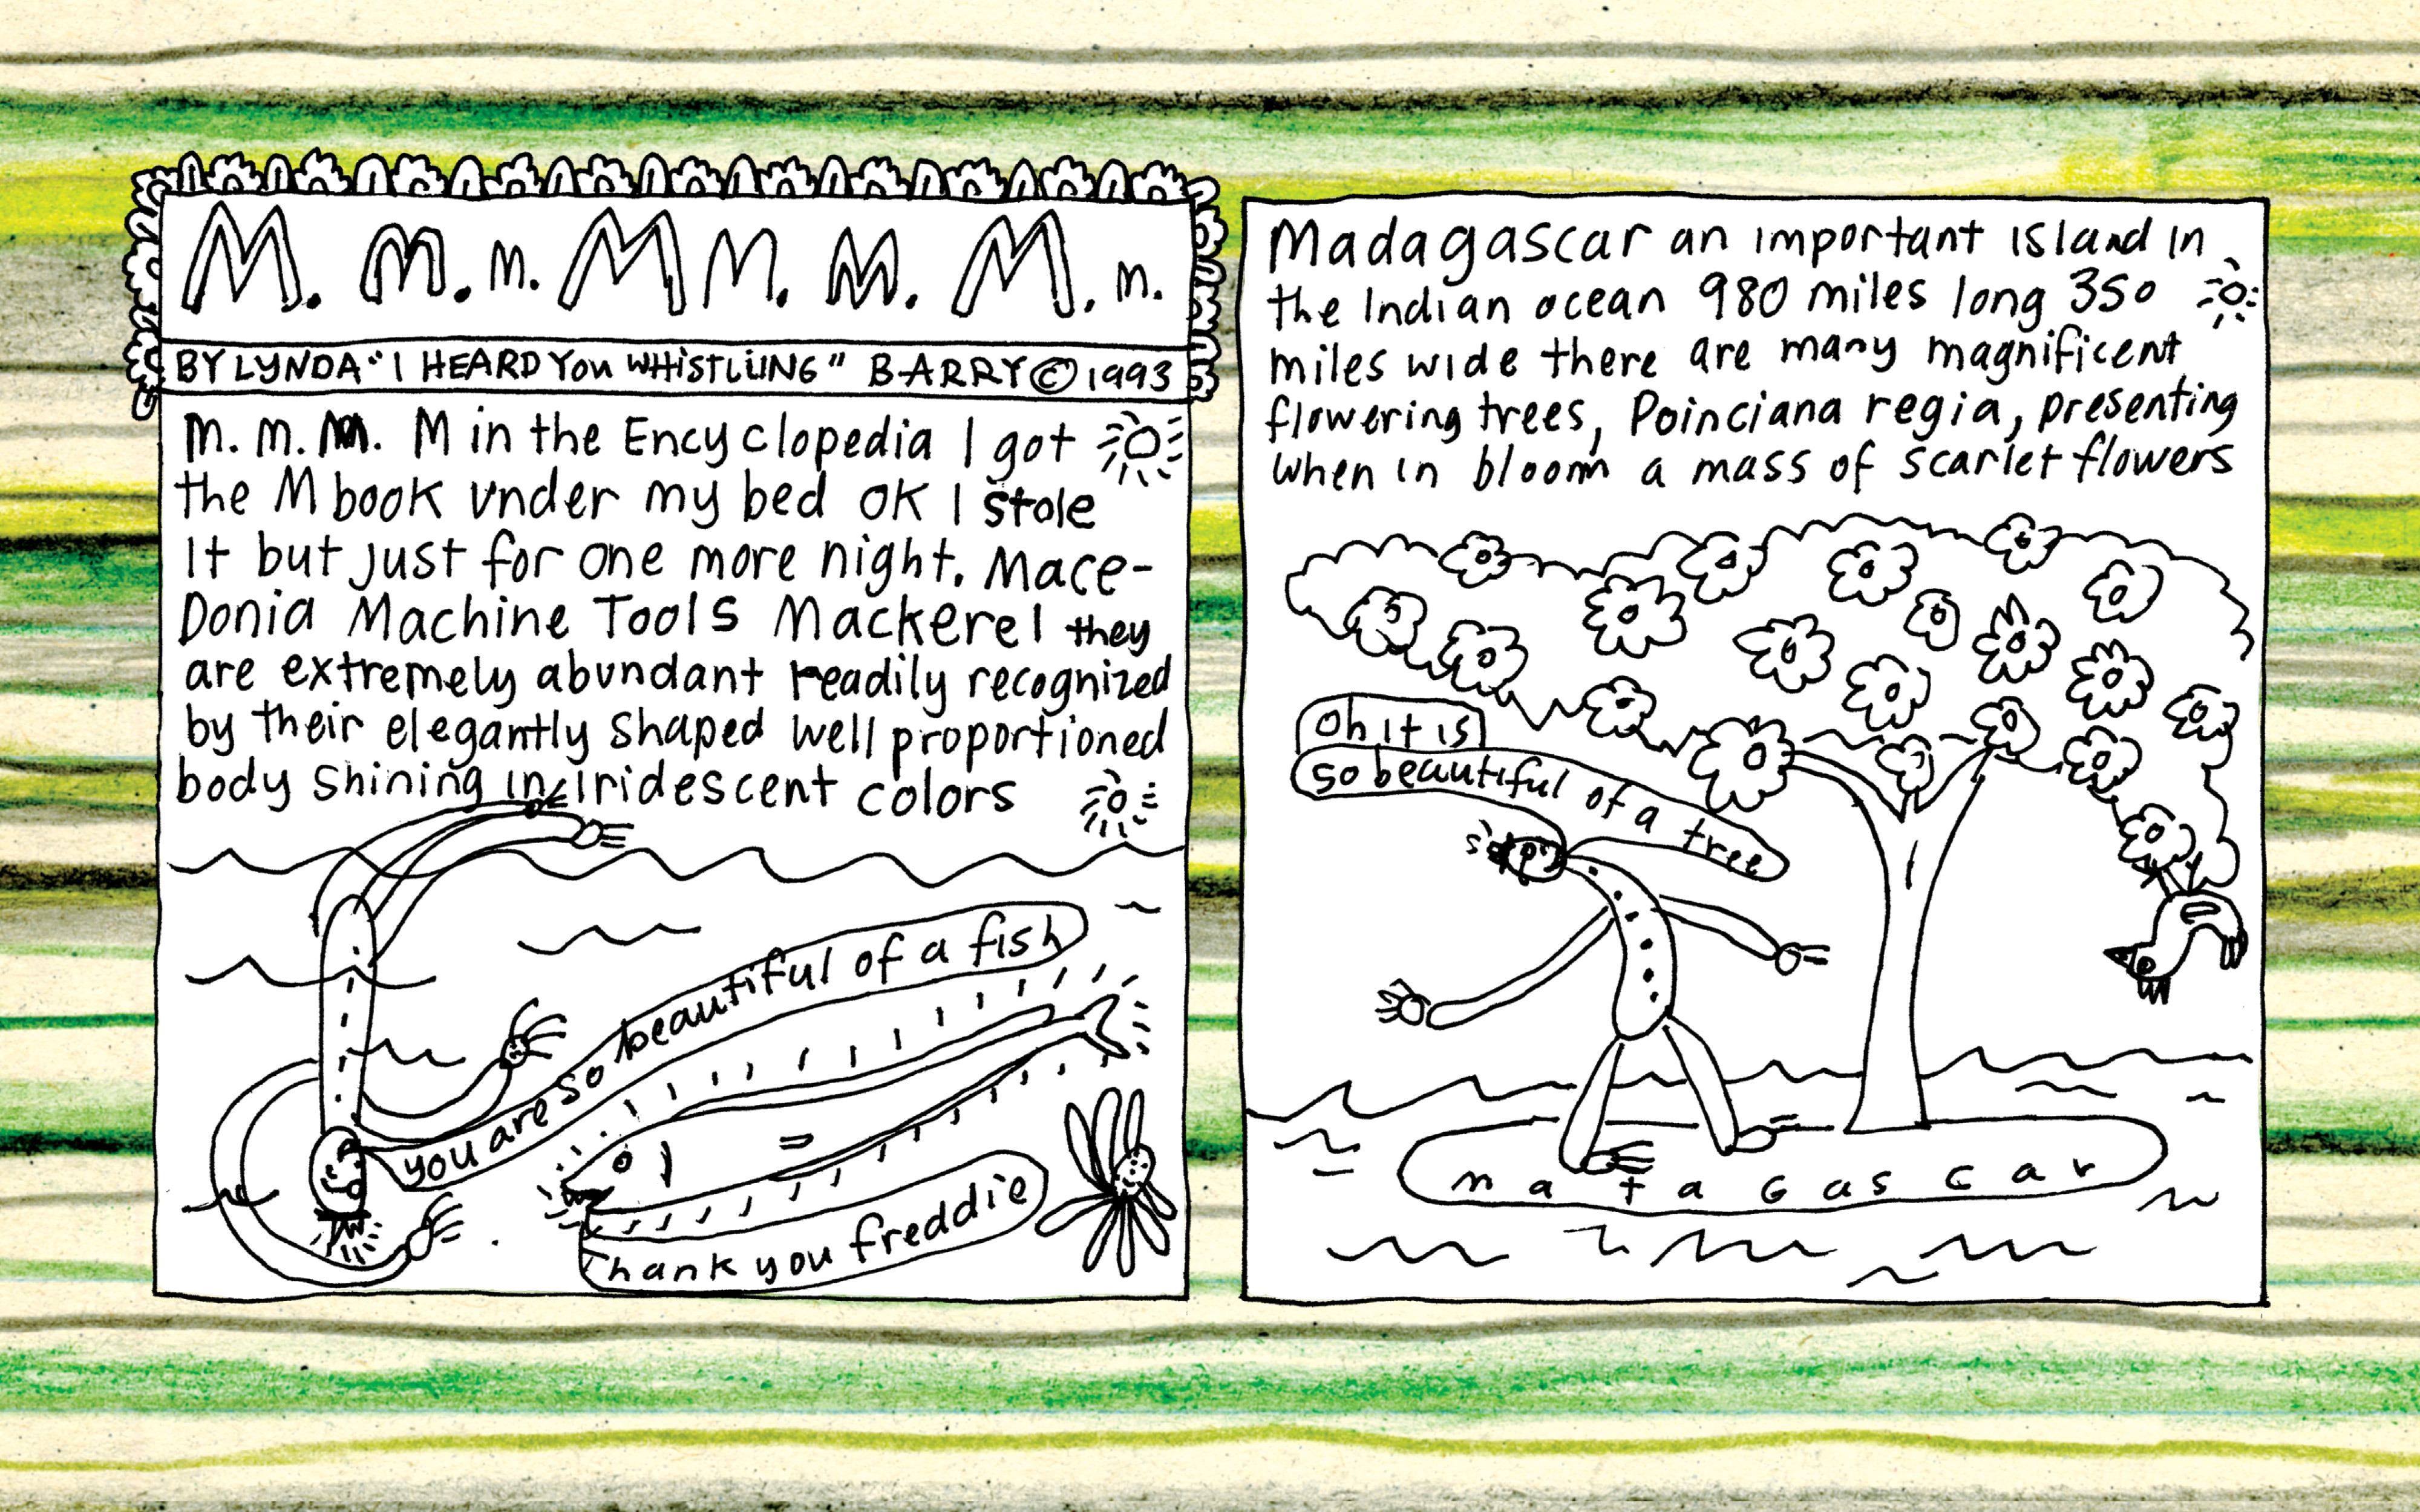 M. m. m. M M. M. M. m.
BY LYNDA "I HEARD YOU WHiSTLiiNG" BARRY © 1993
M. m. M. M in the Encyclopedia I got
the M book under my bed OK I stole
It but just for one more night. Mace-
Donia Machine Tools Mackerel they
are extremely abundant readily recognized
by their elegantly shaped well proportioned
body shining in iridescent colors
you are so beautiful of a fish
Thank you freddie
Madagascar an important island in
the Indian ocean 980 miles long 350
miles wide there are many magnificent
flowering trees, Poinciana regia, presenting
when in bloom a mass of scarlet flowers
Oh it is
so beautiful of a tree
m a t a G a s c a r